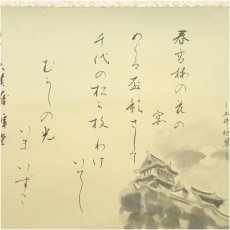 春高楼の花の
宴
めぐる盃影さして
千代の松が枝わけ
いでし
むかしの光
いまいずこ
―土井晩翠―